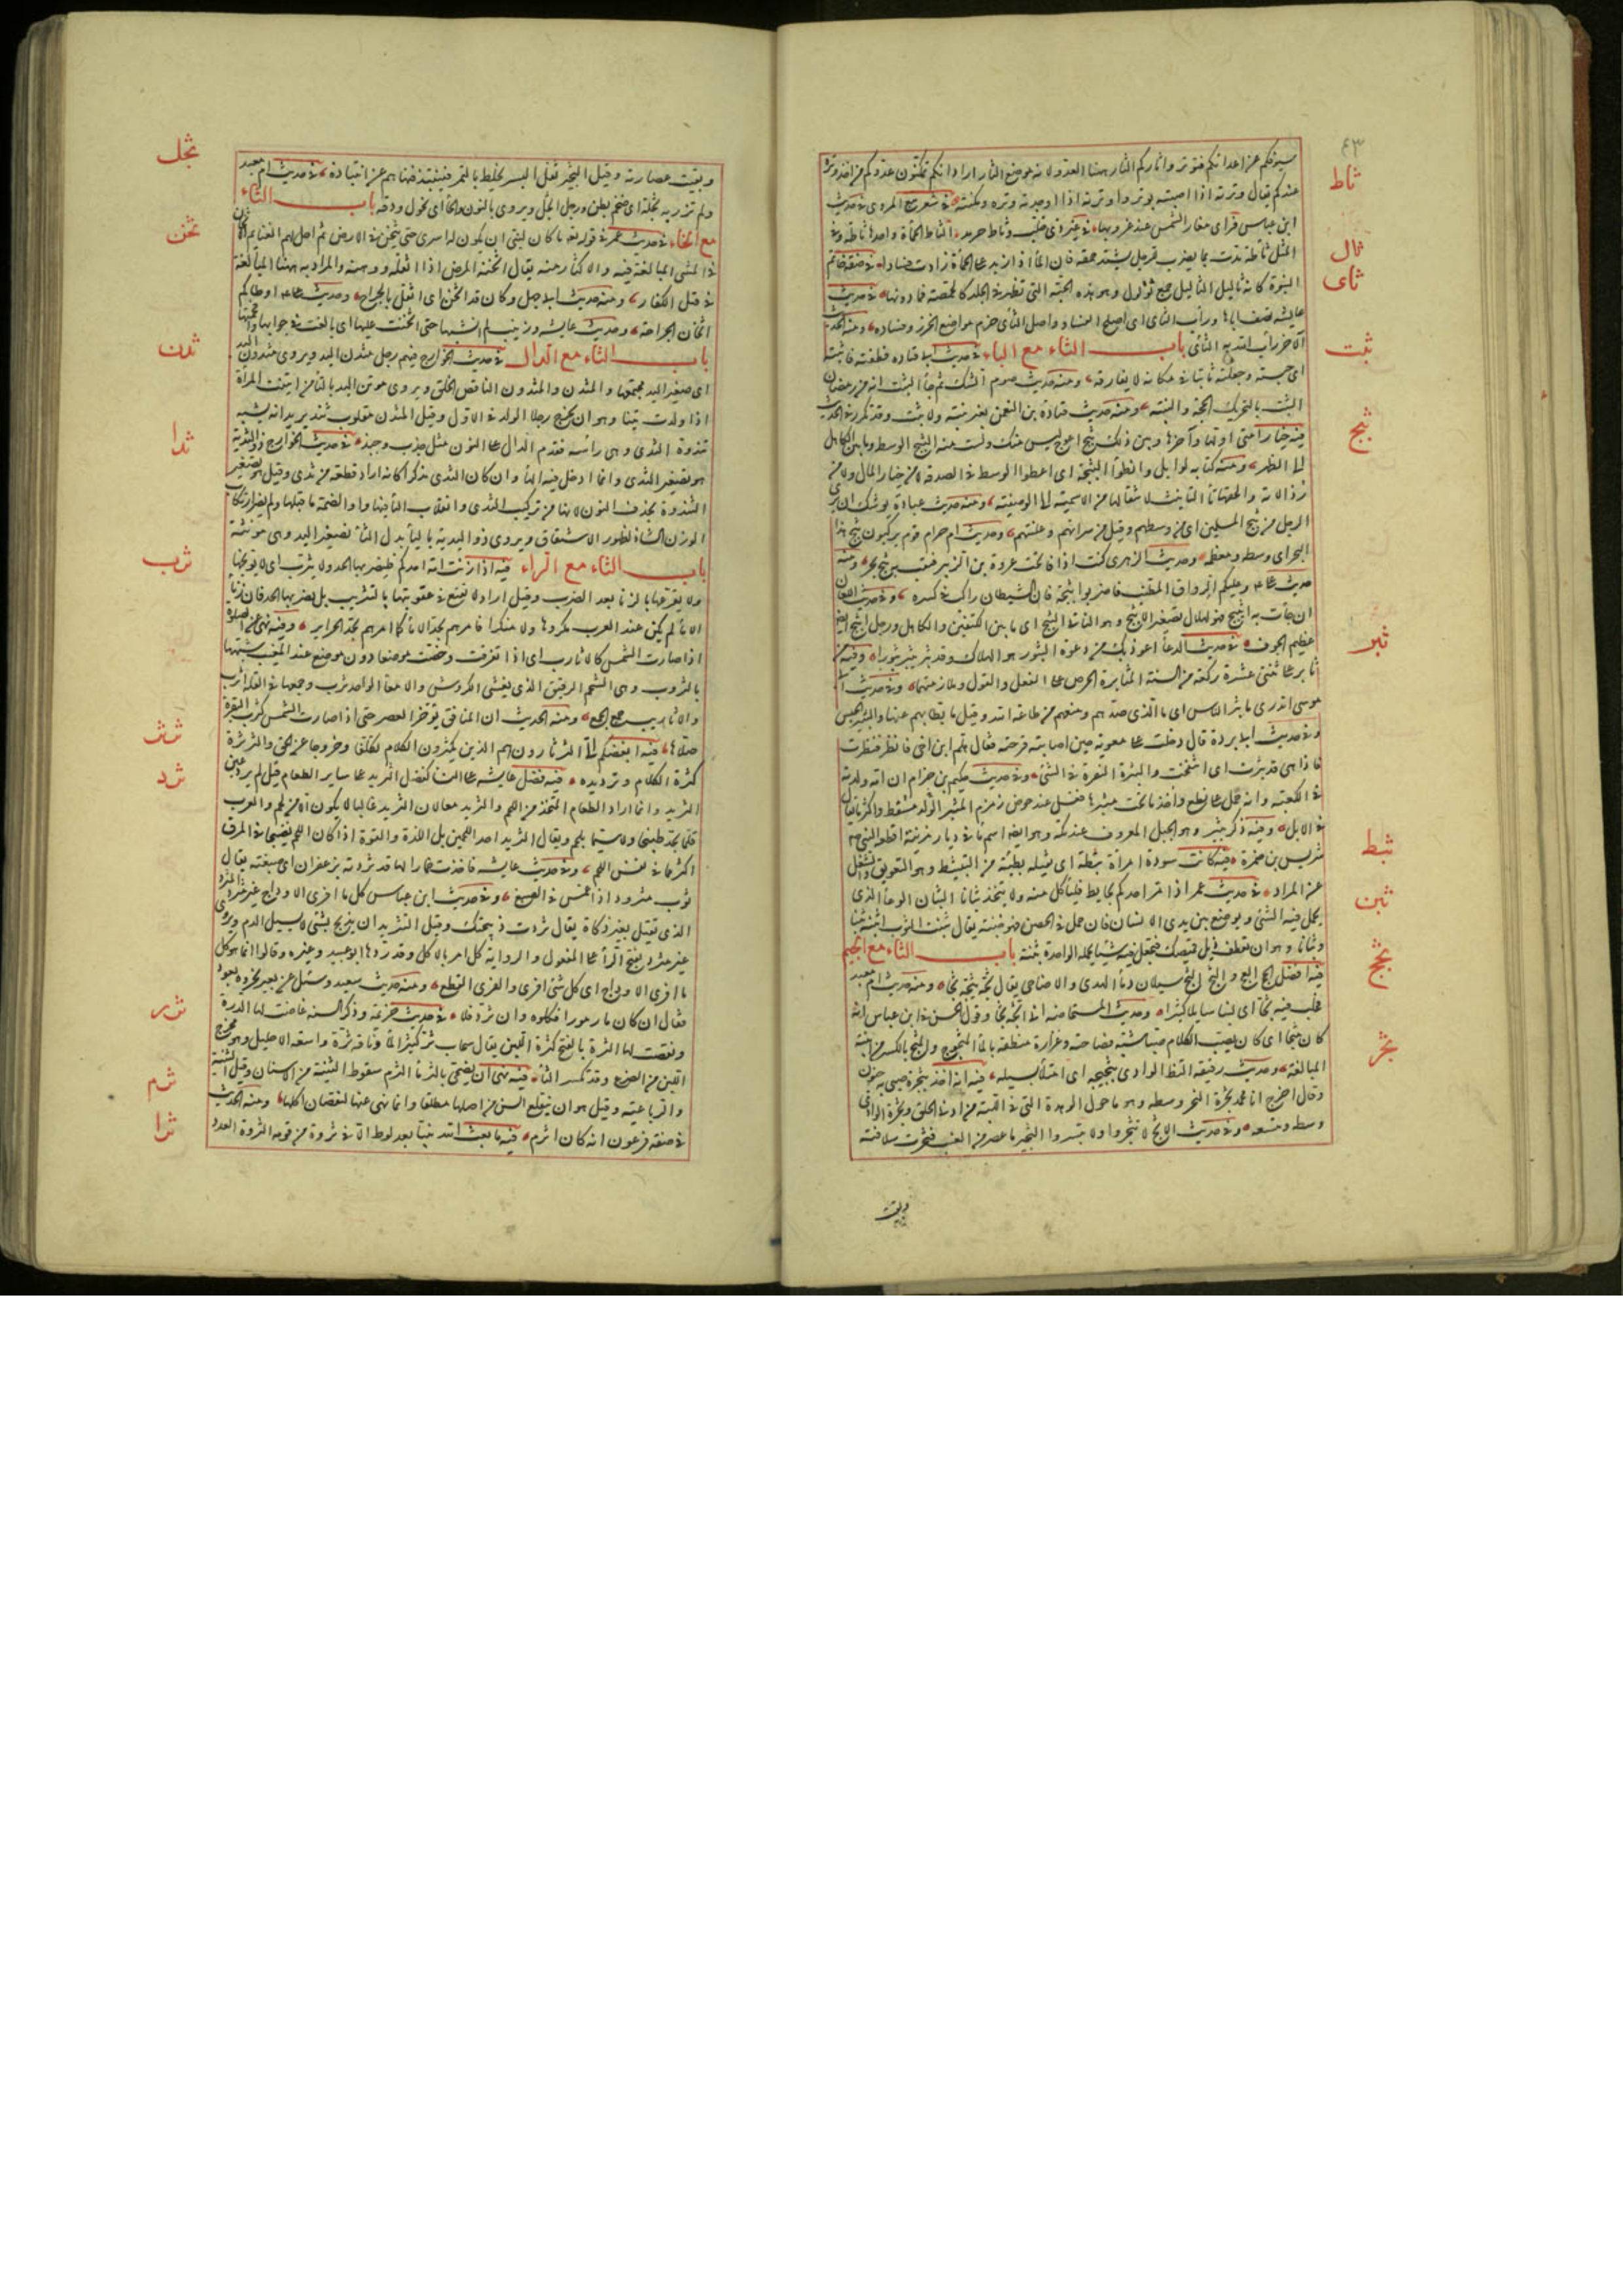 ٤٣
سيوفكم عن اعدائكم فتوتروا ثاركم الثار ههنا العدو لانه موضع الثار اراد انكم تمكنون عدوكم من اخذ وتره
عندكم يقال وترته اذا اصبته بوتر واوترته اذا اوجدته وتره ومكنته في شعر تبع المروى في حديث
ثاط
ابن عباس فراى مغار الشمس عند غروبها في عين ذى خلب وثاط حرمد الثاط الحمأة واحدها ثاطة وفي
المثل ثاطة مدت بماء يضرب للرجل يشتد حمقه فان الماء اذا زيد على الحمأة زادت فسادا في صفة خاتم
ثال
النبوة كانه ثآليل الثآليل جمع ثؤلول وهو هذه الحبة التى تظهر في الجلد كالحمصة فما دونها في حديث
ثاى
عايشه تصف اباها ورأب الثاى اى اصلح الفساد واصل الثاى خرم مواضع الخرز وفساده ومنه الحديث
الآخر رأب الله به الثاى باب الثاء مع الباء في حديث ابى قتاده فطعنته فاثبته
ثبت
اى حبسته وجعلته ثابتا في مكانه لا يفارقه ومنه حديث صوم الشك ثم جاء الثبت انه من رمضان
الثبت بالتحريك الحجة والبينة ومنه حديث قتادة بن النعمن بغير بينة ولا ثبت وقد تكرر في الحديث
فيه خيار امتى اولها وآخرها وبين ذلك ثبج اعوج ليس منك ولست منه الثبج الوسط وما بين الكاهل
ثبج
الى الظهر ومنه كتابه لوايل وانطوا الثبجة اى اعطوا الوسط في الصدقة لا من خيار المال ولا من
رذالته والحقها تاء التانيث لانتقالها من الاسمية الى الوصفية ومنه حديث عبادة يوشك ان يرى
الرجل من ثبج المسلمين اى من وسطهم وقيل من سراتهم وعليتهم وحديث ام حرام قوم يركبون ثبج هذا
البحر اى وسطه ومعظمه وحديث الزهرى كنت اذا فاتحت عروة بن الزبير فتقت به ثبج بحر ومنه
حديث على وعليكم الرواق المطنب فاضربوا ثبجه فان الشيطان راكد في كسره وفي حديث اللعان
ان جاءت به اثيبج فهو لهلال تصغير الاثبج وهو الناتئ الثبج اى ما بين الكتفين والكاهل ورجل اثبج ايضا
عظيم الجوف في حديث الدعاء اعوذ بك من دعوة الثبور هو الهلاك وقد ثبر يثبر ثبورا وفيه من
ثبر
ثابر على ثنتى عشرة ركعة من السنة المثابرة الحرص على الفعل والقول وملازمتهما وفي حديث ابى
موسى اتدرى ما ثبر الناس اى ما الذى صدهم ومنعهم من طاعة الله وقيل ما بطأ بهم عنها والثبر الحبس
وفي حديث ابى بردة قال دخلت على معوية حين اصابته قرحته فقال هلم ابن اخى فانظر فنظرت
فاذا هى قد ثبرت اى انفتحت والثبرة النقرة في الشئ وفي حديث حكيم بن حزام ان امه ولدته
في الكعبة وانه حمل في نطع واخذ ما تحت مثبرها فغسل عند حوض زمزم المثبر مسقط الولد واكثر ما يقال
في الابل وفيه ذكر ثبير وهو الجبل المعروف عند مكة وهو ايضا اسم ماء في ديار مزينة اقطعه النبى صلعم
شريس بن ضمرة فيه كانت سودة امراة ثبطة اى ثقيلة بطيئة من التثبيط وهو التعويق والشغل
ثبط
عن المراد في حديث عمر اذا مر احدكم بحايط فلياكل منه ولا يتخذ ثبانا الثبان الوعاء الذى
ثبن
يحمل فيه الشئ ويوضع بين يدى الانسان فان حمل في الحضن فهو خبنة يقال ثبنت الثوب اثبنه ثبنا
وثبانا وهو ان تعطف ذيل قميصك فتجعل فيه شيئا تحمله الواحدة ثبنة باب الثاء مع الجيم
فيه افضل الحج العج والثج الثج سيلان دماء الهدى والاضاحى يقال ثجه يثجه ثجا ومنه حديث ام معبد
ثجج
فحلب فيه ثجا اى لبنا سايلا كثيرا وحديث المستحاضة انى اثجه ثجا وقول الحسن في ابن عباس انه
كان مثجا اى كان يصب الكلام صبا شبه فصاحته وغزارة منطقه بالماء المثجوج والمثج بالكسر من ابنية
المبالغة وحديث رقيقة اكتظ الوادى بثجيجه اى امتلأ بسيله فيه انه اخذ بثجرة صبى به جنون
ثجر
وقال اخرج انا محمد ثجرة النحر وسطه وهو ما حول الوهدة التى في اللبة من ادنى الحلق وثجرة الوادى
وسطه ومتسعه وفي حديث الاشج لا تثجروا ولا تبسروا الثجير ما عصر من العنب فجرت سلافته
وبقيت
وبقيت عصارته وقيل الثجير ثفل البسر يخلط بالتمر فينتبذ فنهاهم عن انتباذه في حديث ام معبد
ثجل
ولم تزر به ثجلة اى ضخم بطن ورجل اثجل ويروى بالنون والحاء اى نحول ودقة باب الثاء
مع الخاء في حديث عمر في قوله تعالى ما كان لنبى ان يكون له اسرى حتى يثخن في الارض ثم احل لهم الغنايم الاثخان
ثخن
في الشئ المبالغة فيه والاكثار منه يقال اثخنه المرض اذا اثقله ووهنه والمراد به ههنا المبالغة
في قتل الكفار ومنه حديث ابى جهل وكان قد اثخن اى اثقل بالجراح وحديث على اوطاكم
اثخان الجراحة وحديث عايشه وزينب لم انشبها حتى اثخنت عليها اى بالغت في جوابها وافحمتها
باب الثاء مع الدال في حديث الخوارج فيهم رجل مثدن اليد ويروى مثدون اليد
ثدن
اى صغير اليد مجتمعها والمثدن والمثدون الناقص الخلق ويروى موتن اليد بالتاء من ايتنت المرأة
اذا ولدت يتنا وهو ان تخرج رجلا الولد في الاول وقيل المثدن مقلوب ثند يريد انه يشبه
ثندوة الثدى وهى راسه فقدم الدال على النون مثل جذب وجبذ في حديث الخوارج ذو الثدية
ثدا
هو تصغير الثدى وانما ادخل فيه الهاء وان كان الثدى مذكرا كانه اراد قطعة من ثدى وقيل هو تصغير
الثندوة بحذف النون لانها من تركيب الثدى وانقلاب الياء فيها واوا لضمة ما قبلها ولم يضر ارتكاب
الوزن الشاذ لظهور الاشتقاق ويروى ذو اليدية بالياء بدل الثاء تصغير اليد وهى مؤنثة
باب الثاء مع الراء فيه اذا زنت امة احدكم فليضربها الحد ولا يثرب اى لا يوبخها
ثرب
ولا يقرعها بالزنا بعد الضرب وقيل اراد لا يقنع في عقوبتها بالتثريب بل يضربها الحد فان زنا
الاماء لم يكن عند العرب مكروها ولا منكرا فامرهم بحد الاماء كما امرهم بحد الحراير وفيه نهى عن الصلوة
اذا صارت الشمس كالاثارب اى اذا تفرقت وخصت موضعا دون موضع عند المغيب شبهها
بالثروب وهى الشحم الرقيق الذى يغشى الكرش والامعاء الواحد ثرب وجمعها في القلة اثرب
والاثارب جمع الجمع ومنه الحديث ان المنافق يؤخر العصر حتى اذا صارت الشمس كثرب البقرة
صلاها فيه ابغضكم الى الثرثارون هم الذين يكثرون الكلام تكلفا وخروجا عن الحق والثرثرة
ثرثر
كثرة الكلام وترديده فيه فضل عايشه على النسا كفضل الثريد على ساير الطعام قيل لم يرد عين
ثرد
الثريد وانما اراد الطعام المتخذ من اللحم والثريد معا لان الثريد غالبا لا يكون الا من لحم والعرب
قلما تجد طبيخا ولا سيما بلحم ويقال الثريد احد اللحمين بل اللذة والقوة اذا كان اللحم نضيجا في المرق
اكثر مما في نفس اللحم وفي حديث عايشه فاخذت خمارا لها قد ثردته بزعفران اى صبغته يقال
ثوب مثرود اذا غمس في الصبغ وفي حديث ابن عباس كل ما افرى الاوداج غير مثرد المثرد
الذى يقتل بغير ذكاة يقال ثردت ذبيحتك وقيل التثريد ان يذبح بشئ لا يسيل الدم ويروى
غير مثرد بفتح الراء على المفعول والرواية كل امر بالاكل وقد ردها ابو عبيد وغيره وقالوا انما هو كل
ما افرى الاوداج اى كل شئ افرى والفرى القطع ومنه حديث سعيد وسئل عن بعير نحروه بعود
فقال ان كان مار مورا فكلوه وان ثرد فلا في حديث خزيمة وذكر السنة غاضت لها الدرة
ثرر
ونقصت لها الثرة بالفتح كثرة اللبن يقال سحاب ثر كثير الماء وناقة ثرة واسعة الاحليل وهو مخرج
اللبن من الضرع وقد تكسر الثاء فيه نهى ان يضحى بالثرماء الثرم سقوط الثنية من الاسنان وقيل الثنية
ثرم
والرباعية وقيل هو ان ينقلع السن من اصلها مطلقا وانما نهى عنها لنقصان اكلها ومنه الحديث
في صفة فرعون انه كان اثرم فيه ما بعث الله نبيا بعد لوط الا في ثروة من قومه الثروة العدد
ثرا